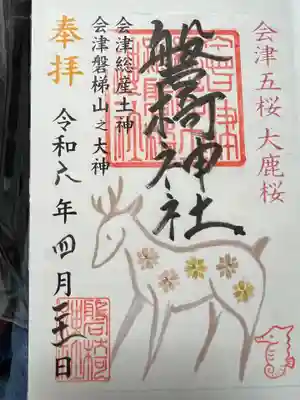 会津五桜 大鹿桜
磐椅神社
会津総産土神
会津磐梯山之大神
奉拝
令和六年四月 日